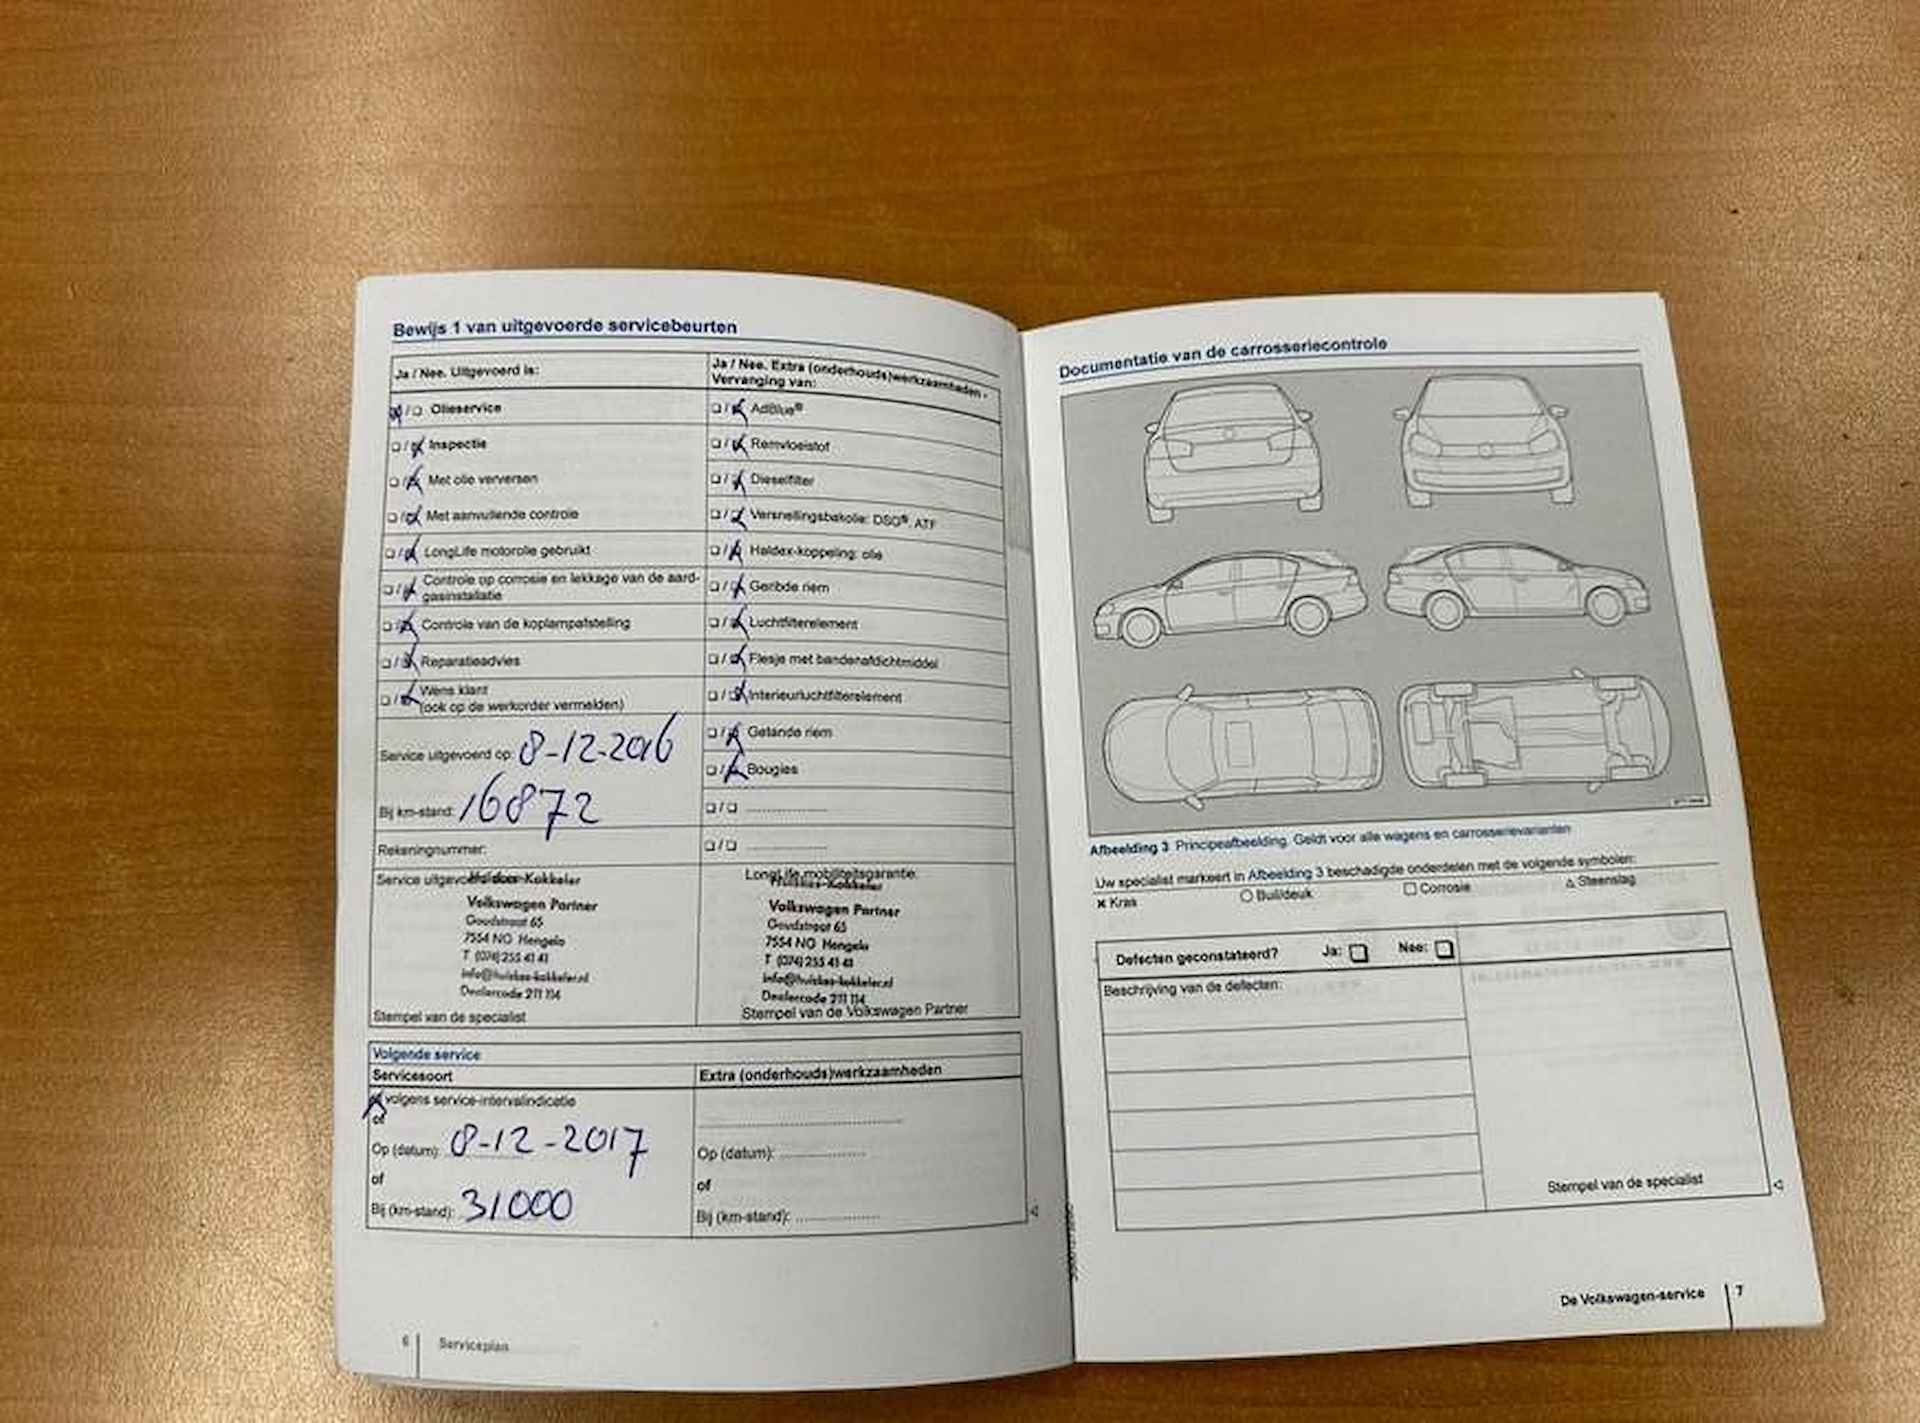 Bewijs 1 van uitgevoerde servicebeurten
Ja / Nee. Uitgevoerd is:
Olieservice
Inspectie
Met olie verversen
Met aanvullende controle
LongLife motorolie gebruikt
Controle op corrosie en lekkage van de aard-
gasinstallatie
Controle van de koplampafstelling
Reparatieadvies
Wens klant
(ook op de werkorder vermelden)
Service uitgevoerd op: 8-12-2016
Bij km-stand: 16872
Rekeningnummer:
Service uitgevoerd door:
Volkswagen Partner
Goudstraat 65
7554 NG Hengelo
T (074) 255 41 41
info@huiskes-kokkeler.nl
Dealercode 211 114
Stempel van de specialist
Ja / Nee. Extra (onderhouds)werkzaamheden -
Vervanging van:
AdBlue®
Remvloeistof
Dieselfilter
Versnellingsbakolie: DSG®, ATF
Haldex-koppeling: olie
Geribde riem
Luchtfilterelement
Flesje met bandenafdichtmiddel
Interieurluchtfilterelement
Getande riem
Bougies
LongLife mobiliteitsgarantie:
Huiskes-Kokkeler
Volkswagen Partner
Goudstraat 65
7554 NG Hengelo
T (074) 255 41 41
info@huiskes-kokkeler.nl
Dealercode 211 114
Stempel van de Volkswagen Partner
Volgende service
Servicesoort
volgens service-intervalindicatie
of
Op (datum): 8-12-2017
of
Bij (km-stand): 31000
Extra (onderhouds)werkzaamheden
Op (datum):
of
Bij (km-stand):
6 Serviceplan
Documentatie van de carrosseriecontrole
Afbeelding 3 Principeafbeelding. Geldt voor alle wagens en carrosserievarianten
Uw specialist markeert in Afbeelding 3 beschadigde onderdelen met de volgende symbolen:
× Kras ○ Buil/deuk □ Corrosie △ Steenslag
Defecten geconstateerd? Ja: Nee:
Beschrijving van de defecten:
Stempel van de specialist
De Volkswagen-service 7